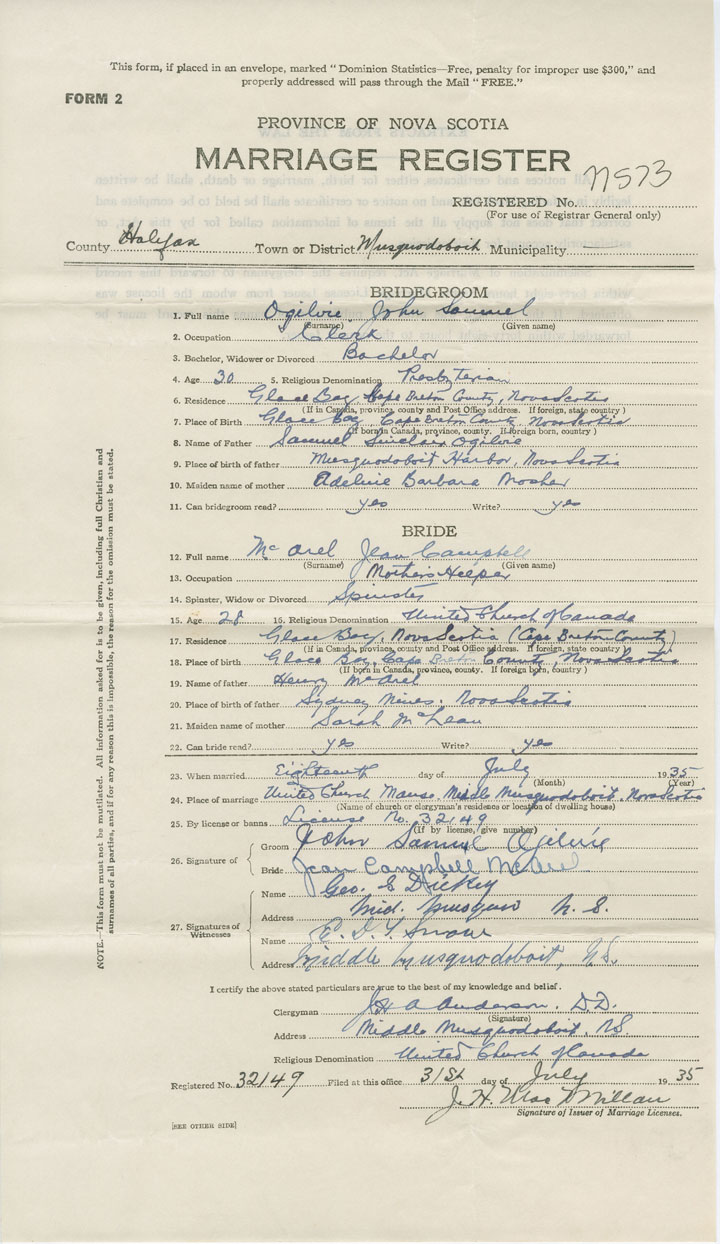 This form, if placed in an envelope, marked "Dominion Statistics—Free, penalty for improper use $300," and
properly addressed will pass through the Mail "FREE."
FORM 2
PROVINCE OF NOVA SCOTIA
MARRIAGE REGISTER
REGISTERED No.
(For use of Registrar General only)
County Halifax Town or District Musquodoboit Municipality
BRIDEGROOM
1. Full name Ogilvie, John Samuel
(Surname) (Given name)
2. Occupation Clerk
3. Bachelor, Widower or Divorced Bachelor
4. Age 30 5. Religious Denomination Presbyterian
6. Residence Glace Bay, Cape Breton County, Nova Scotia
(If in Canada, province, county and Post Office address. If foreign, state country)
7. Place of Birth Glace Bay, Cape Breton County Nova Scotia
(If born in Canada, province, county. If foreign born, country)
8. Name of Father Samuel Sinclair Ogilvie
9. Place of birth of father Musquodoboit Harbor, Nova Scotia
10. Maiden name of mother Adeline Barbara Mosher
11. Can bridegroom read? yes Write? yes
BRIDE
12. Full name McArel Jean Campbell
(Surname) (Given name)
13. Occupation Mothers Helper
14. Spinster, Widow or Divorced Spinster
15. Age 28 16. Religious Denomination United Church of Canada
17. Residence Glace Bay, Nova Scotia (Cape Breton County)
(If in Canada, province, county and Post Office address. If foreign, state country)
18. Place of birth Glace Bay, Cape Breton County, Nova Scotia
(If born in Canada, province, county. If foreign born, country)
19. Name of father Henry McArel
20. Place of birth of father Sydney Mines, Nova Scotia
21. Maiden name of mother Sarah McLean
22. Can bride read? yes Write? yes
23. When married Eighteenth day of July 1935
(Month) (Year)
24. Place of marriage United Church Manse, Middle Musquodoboit, Nova Scotia
(Name of church or clergyman's residence or location of dwelling house)
25. By license or banns License No. 32149
(If by license, give number)
26. Signature of
Groom John Samuel Ogilvie
Bride Jean Campbell McArel
27. Signatures of Witnesses
Name Geo. E Dickey
Address Mid. Musquo N. S.
Name
Address Middle Musquodoboit, N.S.
I certify the above stated particulars are true to the best of my knowledge and belief.
Clergyman J H A Anderson. D.D.
(Signature)
Address Middle Musquodoboit, NS
Religious Denomination United Church of Canada
Registered No. 32149 Filed at this office 31st day of July 1935
J. H. MacMillan
Signature of Issuer of Marriage Licenses.
[SEE OTHER SIDE]
NOTE.—This form must not be mutilated. All information asked for is to be given, including full Christian and
surnames of all parties, and if for any reason this is impossible, the reason for the omission must be stated.